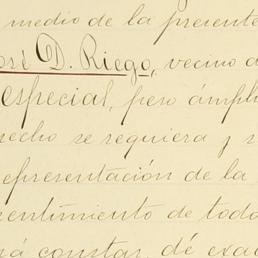 medio de la presente
José D. Riego, vecino d
especial, pero ámpli
recho se requiera y s
epresentación de la
sentimiento de todo
rá constar, dé exac